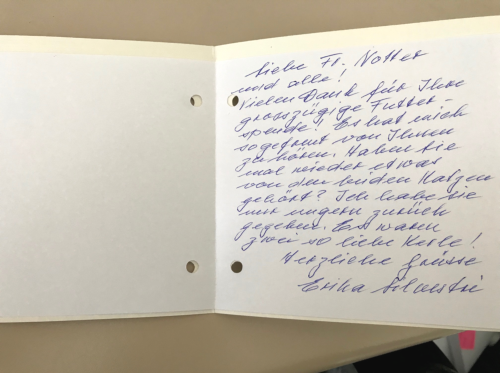 Liebe Fr. Notter
und alle!
Vielen Dank für Ihre
grosszügige Futter-
spende! Es hat mich
so gefreut von Ihnen
zu hören. Haben Sie
mal wieder etwas
von den beiden Katzen
gehört? Ich habe sie
nur ungern zurück
gegeben. Es waren
zwei so liebe Kerle!
Herzliche Grüsse
Erika